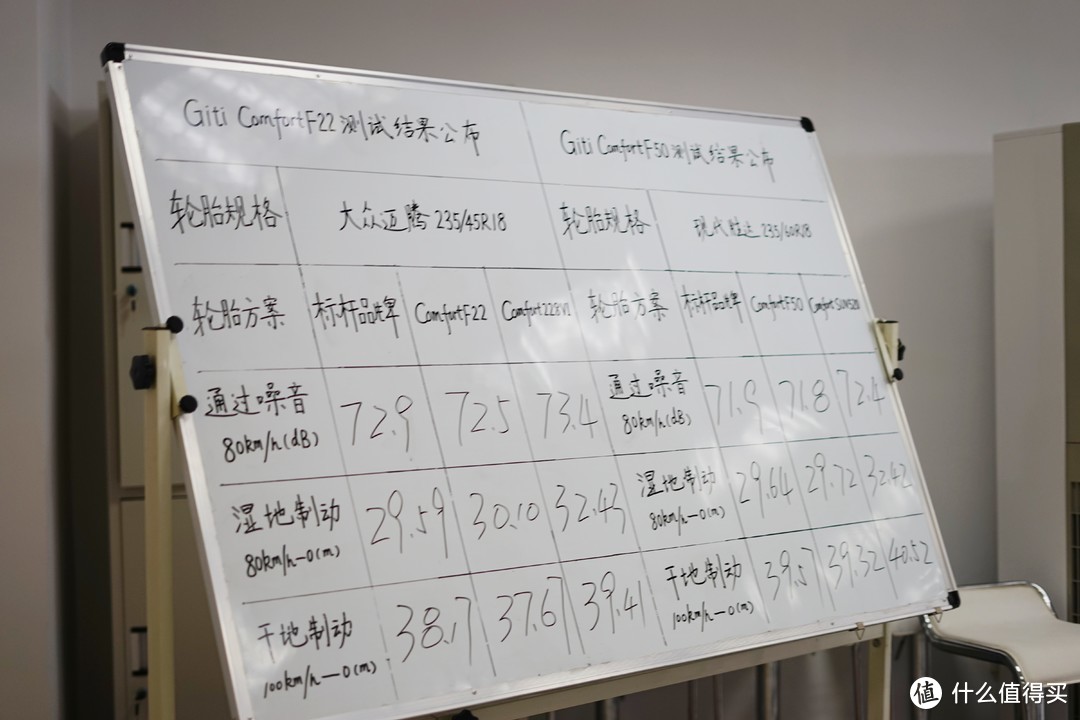 Giti ComfortF22 测试结果公布
Giti ComfortF50 测试结果公布
轮胎规格 大众迈腾 235/45R18 轮胎规格 现代胜达 235/60R18
轮胎方案 标杆品牌 ComfortF22 Comfort228V1 轮胎方案 标杆品牌 ComfortF50 ComfortSUV520
通过噪音 72.9 72.5 73.4 通过噪音 71.9 71.8 72.4
80km/h(dB) 80km/h(dB)
湿地制动 29.59 30.10 32.43 湿地制动 29.64 29.72 32.42
80km/h—0(m) 80km/h—0(m)
干地制动 38.17 37.61 39.41 干地制动 39.57 39.32 40.52
100km/h—0(m) 100km/h—0(m)
值 什么值得买